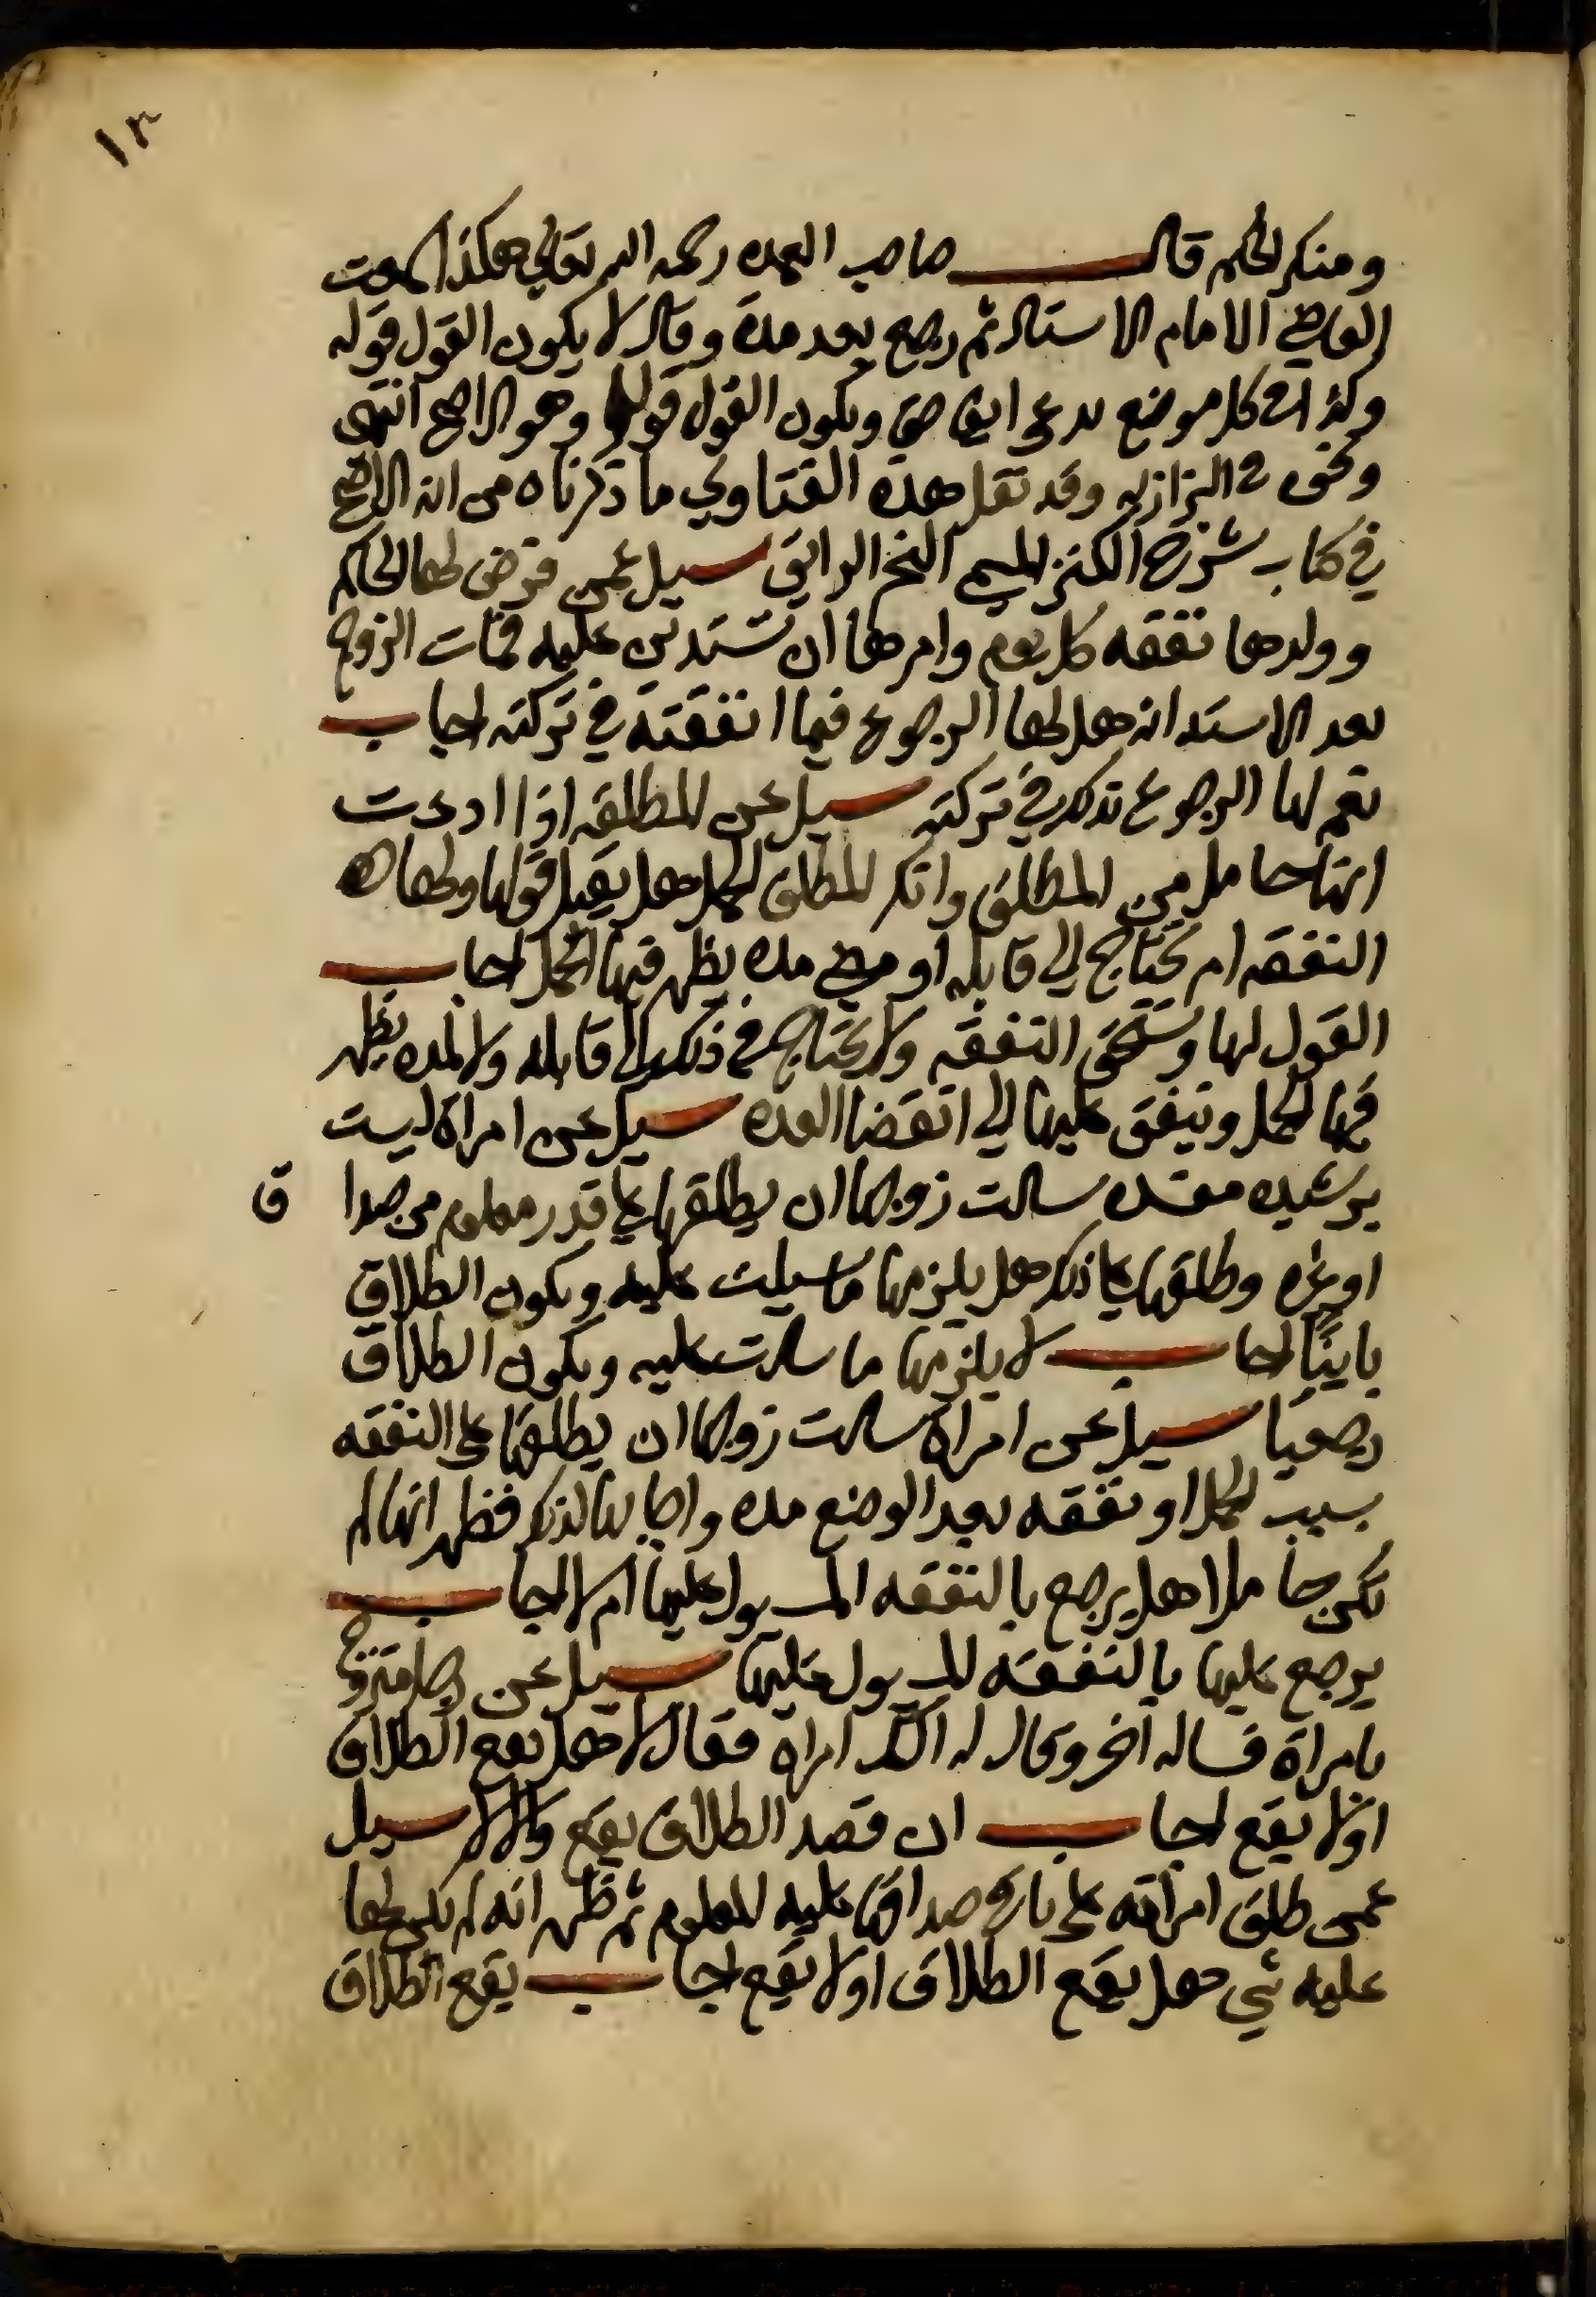 ١٣
ومنكر الحكم قال صاحب العمده رحمه الله تعالي هكذا سمعت
القاضي الامام الاستاد ثم رجع بعد مدة وقال لا يكون القول قوله
وكذا في كل موضع يدعي ايفا حق ويكون القول قولها وهو الاصح انتهى
ونحوه في البزازيه وقد نقل هذه الفتاوي ما ذكرناه من انه الاصح
في كتاب شرح الكنز المسمى البحر الرايق سيل عمن فرض لها الحاكم
وولدها نفقه كل يوم وامرها ان تستدين عليه فمات الزوج
بعد الاستدانه هل لها الرجوع فيما انفقته في تركته اجاب
نعم لها الرجوع بذلك في تركته سيل عن المطلقه اذا ادعت
انها حامل من المطلق وانكر المطلق الحمل هل يقبل قولها ولها
النفقه ام يحتاج الي قابله او مضي مده يظهر فيها الحمل اجاب
القول لها وتستحق النفقه ولا يحتاج في ذلك الى قابله ولا لمده يظهر
فيها الحمل وينفق عليها الي انقضا العده سيل عن امراة ليست
برشيده مفسده سالت زوجها ان يطلقها علي قدر معلوم من صدا ق
او غيره وطلقها علي ذلك هل يلزمها ما سيلت عليه ويكون الطلاق
باينًا اجاب لا يلزمها ما سالت عليه ويكون الطلاق
رجعيا سيل عن امراة سالت زوجها ان يطلقها على النفقه
بسبب الحمل او نفقه بعد الوضع مده واجابها لذلك فظهر انها لم
تكن حاملا هل يرجع بالنفقه المسيول عليها ام لا اجاب
يرجع عليها بالنفقه المسيول عليها سيل عن رجل متزوج
بامراة فساله اخر وقال له الك امراة فقال لا هل يقع الطلاق
او لا يقع اجاب ان قصد الطلاق يقع والا لا سيل
عمن طلق امراته على باقي صداقها عليه المعلوم ثم ظهر انه لم يكن لها
عليه شي هل يقع الطلاق او لا يقع اجاب يقع الطلاق